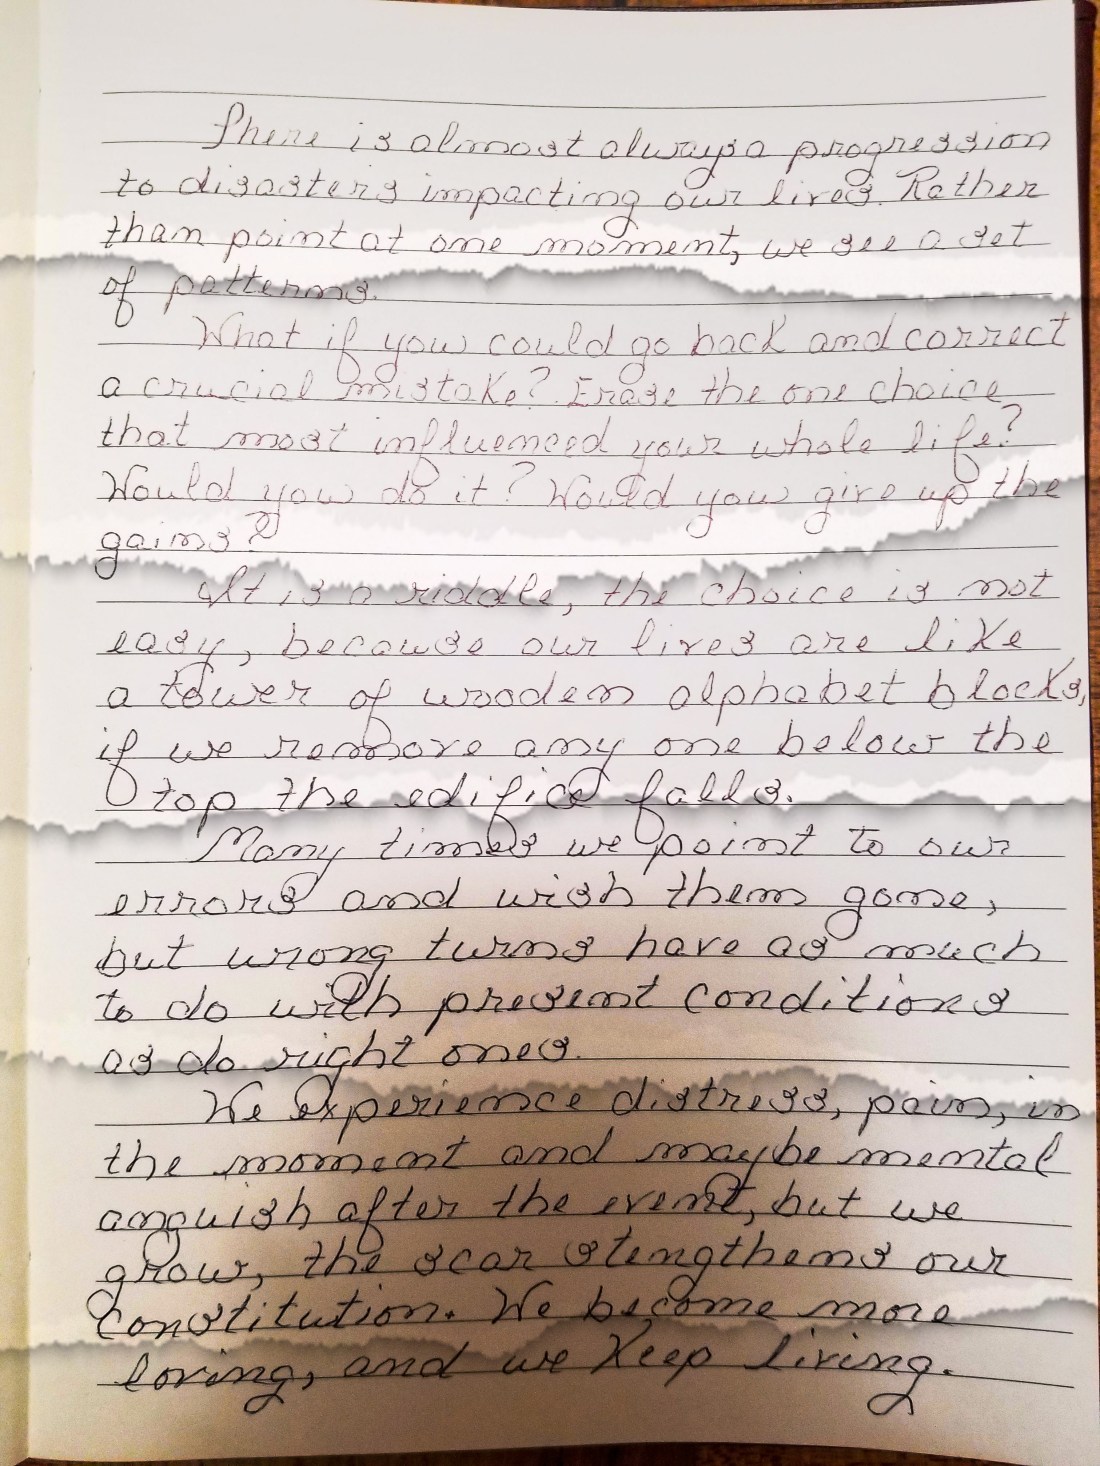 There is almost always a progression
to disasters impacting our lives. Rather
than point at one moment, we see a set
of patterns.
What if you could go back and correct
a crucial mistake? Erase the one choice
that most influenced your whole life?
Would you do it? Would you give up the
gains?
It is a riddle, the choice is not
easy, because our lives are like
a tower of wooden alphabet blocks,
if we remove any one below the
top the edifice falls.
Many times we point to our
errors and wish them gone,
but wrong turns have as much
to do with present conditions
as do right ones.
We experience distress, pain, in
the moment and maybe mental
anguish after the event, but we
grow, the scar stengthens our
constitution. We become more
loving, and we keep living.